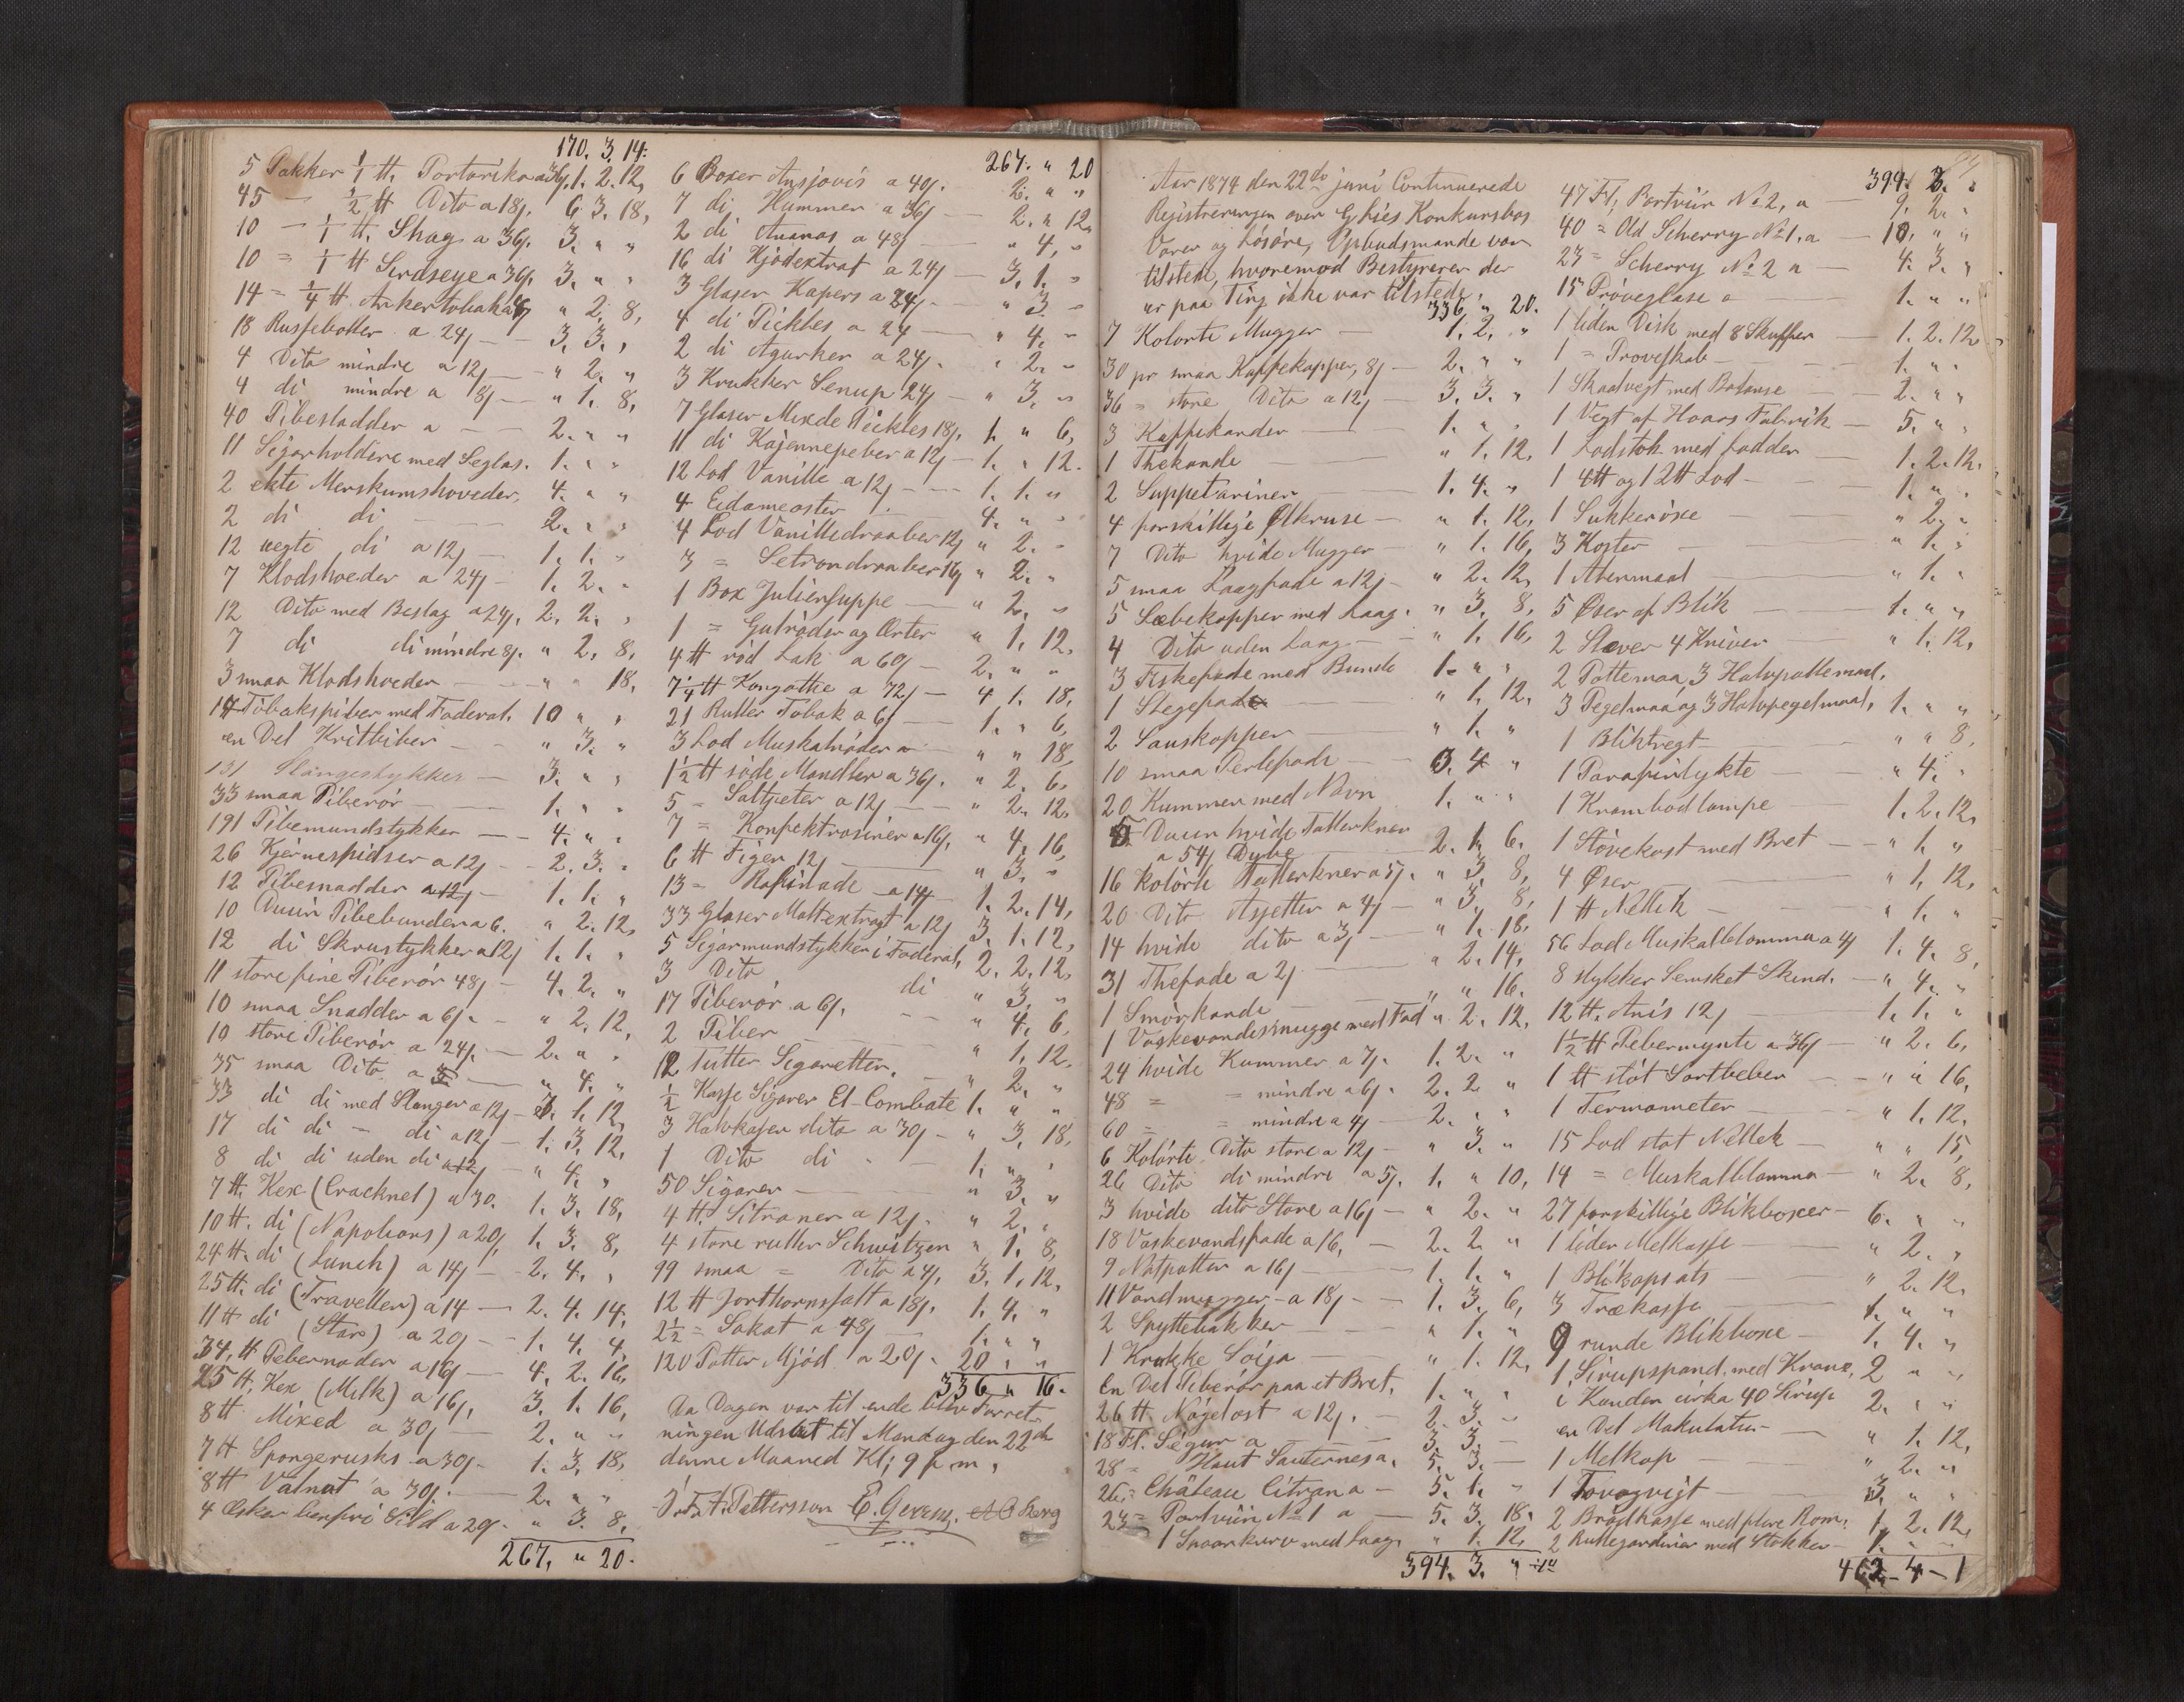 170. 3. 14.
5 Pakker 1/1 ℔. Portoriko a 36ȷ. 1. 2. 12,
45 — 1/2 ℔ Dito a 18ȷ. 6. 3. 18,
10 — 1/1 ℔. Shag a 36ȷ. 3. " "
10 = 1/1 ℔ Birdseye a 36ȷ. 3. " "
14 = 1/4 ℔. Ankertobak " 2. 8,
18 Russebolter a 24ȷ — 3. 3. ,
4 Dito mindre a 12ȷ — " 2. "
4 di mindre a 8ȷ — " 1. 8,
40 Pibesladder a — 2. " "
11 Sigarholdere med Seglas. 1. " "
2 ekte Merskumshoveder, 4. " "
2 di di — 2. " "
12 uegte di a 12ȷ — 1. 1. "
7 Klodshoeder a 24ȷ — 1. 2. "
12 Dito med Beslag a 24ȷ. 2. 2. ,
7 di di mindre 8ȷ. " 2. 8,
3 smaa Klodshoeder — " " 18,
17 Tobakspiber med Foderal. 10 " "
en Del Kritbiber — " 3. "
131 Slangestykker — 3. " "
33 smaa Piberør — 1. " "
191 Pibemundstykker — 4. " "
26 Kjernespidser a 12ȷ — 2. 3. "
12 Pibesnadder a 12ȷ — 1. 1. "
10 Dusin Pibebunder a 6. " 2. 12,
12 di Skrustykker a 12ȷ 1. 1. "
11 store fine Piberør 48ȷ — 4. 2. "
10 smaa Snadder a 6ȷ. — " 2. 12,
10 store Piberør a 24ȷ. — 2. " "
35 smaa Dito a — " 4. "
33 di di med Slanger a 12ȷ — 3. 1. 12,
17 di di — di a 12ȷ — 1. 3. 12,
8 di di uden di a 12ȷ — " 4. "
7 ℔. Kex (Cracknel) a 30. 1. 3. 18,
10 ℔. di (Napoleons) a 20ȷ 1. 3. 8,
24 ℔. di (Lunch) a 14ȷ — 2. 4. ,
25 ℔. di (Traveller) a 14 — 2. 4. 14.
11 ℔ di (Star) a 20ȷ — 1. 4. 4,
34, ℔ Pebernøder a 16ȷ — 4. 2. 16,
25 ℔, Kex (Milk) a 16ȷ, 3. 1. 16,
8 ℔ Mixed a 30ȷ — 2. " "
7 ℔ Spongerusks a 30ȷ — 1. 3. 18,
8 ℔ Valnut a 30ȷ. — 2. " "
4 Æsker benfri Sild a 20ȷ. " 3. 8,
267, " 20.
267. " 20
6 Boxer Ansjovis a 40ȷ. 2. " "
7 di Hummer a 36ȷ — 2. " 12,
2 di Ananas a 48ȷ — " 4, "
16 di Kjødextrat a 24ȷ — 3. 1. "
3 Glaser Kapers a 24ȷ — " 3. "
4 di Pickles a 24 — " 4. "
2 di Agurker a 24ȷ. " 2. "
3 Krukker Senup 24ȷ — " 3. "
7 Glaser Mixde Pickles 18ȷ. 1. " 6,
11 di Kajennepeber a 12ȷ — 1. " 12.
12 Lod Vanille a 12ȷ — 1. 1. "
4 Eidameoster — 4. " "
4 Lod Vanilledraaber 12ȷ " 2. "
3 = Setrondraaber 16ȷ " 2. "
1 Box Juliensuppe — " 2. "
1 = Gulrøder og Ærter " 1. 12,
4 ℔ rød Lak a 60ȷ — 2. " "
7 1/4 ℔ Kongothe a 72ȷ — 4 1. 18,
21 Ruller Tobak a 6ȷ — 1. " 6,
3 Lod Muskatnøder — " " 18,
1 1/2 ℔ søde Mandler a 36ȷ. " 2. 6.
5 = Saltpeter a 12ȷ — " 2. 12,
7 = Konfektrosiner a 16ȷ. " 4. 16,
6 ℔ Figen 12ȷ — " 3. "
13 = Rafinade a 14ȷ — 1. 2. 14,
33 Glaser Maltextragt a 12ȷ 3. 1. 12,
5 Sigarmundstykker i Foderal, 2. 2. 12,
3 Dito di " 3. "
17 Piberør a 6ȷ. — " 4. 6,
2 Piber — " 1. 12.
12 Tutter Sigaretter. — " 2. "
1/2 Kasse Sigarer El-Combate 1. " "
3 Halvkasser dito a 30ȷ — " 3. 18,
1 Dito di — 1. " "
50 Sigarer — " 3. "
4 ℔. Sitroner a 12ȷ. " 2. "
4 store ruller Schwitzen " 1. 8,
99 smaa = Dito a 4ȷ, 3. 1. 12,
12 ℔ Jorthornssalt a 18ȷ. 1. 4. "
2 1/2 = Sukat a 48ȷ — 1. " "
120 Potter Mjød a 20ȷ. 20 " "
336 " 16.
Da Dagen var til ende blev Forret-
ningen Udsat til Mandag den 22de
denne Maaned Kl; 9 f. m.
Pettersson E. Gerem,
Aar 1874 den 22de juni Continuerede
Registreringen over Konkursbos
Varer og Løsøre, Opbudsmande var
tilstede, hvoremod Bestyrerer der
er paa Ting ikke var tilstede.
336 " 20.
7 Kolørte Mugger — 1. 2. "
30 pr smaa Kaffekopper, 8ȷ — 2. " "
36 = store Dito a 12ȷ — 3. 3. "
3 Kaffekander — 1. " "
1 Thekande — " 1. 12,
2 Suppetariner — 1. 4. "
4 forskillige Ølkruse — " 1. 12,
7 Dito hvide Mugger — " 1. 16,
5 smaa Laagfade a 12ȷ — " 2. 12,
5 Sæbekopper med Laag. " 3. 8,
4 Dito uden Laag — " 1. 16,
3 Feskefade med Bunde 1. " "
1 Stegefade — " 1. 12,
2 Sauskopper — " 1. "
10 smaa Perlefade — 3. 4 "
20 Kummer med Navn 1. " "
5 Dusin hvide Tallerkner
a 54ȷ Dybe 2. 1. 6.
16 kolørte Tallerkner a 5ȷ. " 3. 8,
20 Dito Asjetter a 4ȷ — " 3. 8,
14 hvide dito a 3ȷ — " 1. 18,
31 Thefade a 2ȷ — " 2. 14,
1 Smørkande — " " 16.
1 Vaskevandsmugge med Fad " 2. 12,
24 hvide Kummer a 7ȷ. 1. 2. "
48 = = mindre a 6ȷ. 2. 2 "
60 = = mindre a 4ȷ — 2. " "
6 Kolørte Dito store a 12ȷ — " 3. "
26 Dito di mindre a 5ȷ. 1. " 10,
3 hvide dito Store a 16ȷ — " 2. "
18 Vaskevandsfade a 16, — 2. 2 "
9 Natpotter a 16ȷ — 1. 1. "
11 Vandmugger a 18ȷ — 1. 3. 6,
2 Spyttebakker — " 1. "
1 Krukke Soija — " 1. 12,
En Del Piberør paa et Bret. 1. " "
26 ℔. Nøgelost a 12ȷ. — 2. 3. "
18 Fl. Segur a — 3 3. —
28 = Haut Sauternes a. 5. 3. —
26 = Château Citran a — 5. 1. "
23 = Portviin No 1 a — 5. 3. 18.
1 Snaarkurv med Laag " 1. 12,
394. 3. "
394. 3. "
47 Fl, Portviin No 2, a — 9. 2. "
40 = Old Scherry No 1. a — 10, " "
23 = Scherry No 2 a — 4. 3. "
15 Prøveglase a — 1. " "
1 liden Disk med 8 Skuffer — 1. 2. 12,
1 = Prøveskab — 1. " "
1 Skaalvegt med Balanse — 2. " "
1 Vegt af Haars Fabrik — 5. " "
1 Lodstok med Lodder — 1. 2. 12.
1 4℔ og 1 2℔ Lod — 1. " "
1 Sukkerøxe — " 2. "
3 Koster — " 1. "
1 Alenmaal — " 1. "
5 Øser af Blik — 1. " "
2 Sløver 4 Kniver — " 1. 12,
2 Pottemaa, 3 Halvpottemaal.
3 Pegelmaa og 3 Halvpegelmaal, 1. " "
1 Bliktregt — " " 8,
1 Parafinlykte — " 4. "
1 Krambodlampe — 1. 2. 12,
1 Støvekost med Bret — " 1. "
4 Øser — " 1. 12,
1 ℔ Nellik — " 1. "
56 Lod Muskatblomma a 4ȷ 1. 4. 8,
8 stykker Semsket Skind. — " 4. "
12 ℔. Anis 12ȷ — 1. 1. "
1 1/2 ℔ Pebermynte a 36ȷ — " 2. 6,
1 ℔ støt Sortbeber — " " 16,
1 Termometer — " 1. 12.
15 Lod støt Nellek — " " 15,
14 = Muskatblomma — " 2. 8,
27 forskillige Blikboxer — 6. " "
1 liden Melkasse — " 2. "
1 Blikopsats — " 2. 12.
3 Trækasse — 1. " "
9 runde Blikboxe — 1. 4. "
1 Sirupspand, med Krane, 2 " "
i Kanden cirka 40 Sirup 2. " "
en Del Makulatur — " 1. 12,
1 Melkop — " 2. "
1 Tovogvigt — 3. " "
2 Brødkasse med flere Rom. 1. 2. 12,
2 Rullegardiner med Stokker — 1. " "
462 - 4 - 1